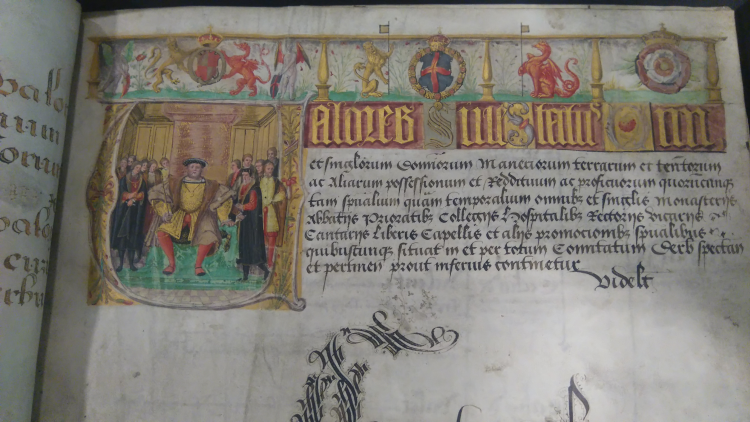 Valores Siue Status Om
et singlorum Dominiorum Maneriorum terrarum et tentorum
ac Aliarum possessionum et Reddituum ac proficuorum quorumcunq
tam spualium quam temporalium omnibus et singlis monasterijs
Abbatijs Prioratibs Collegijs Hospitalibs Rectorijs vicarijs
Cantarijs liberis Capellis et alijs promocionibs spualibus
quibuscunq situat in et per totum Comitatum Derb spectan
et pertinen prout inferius continetur
Videlt